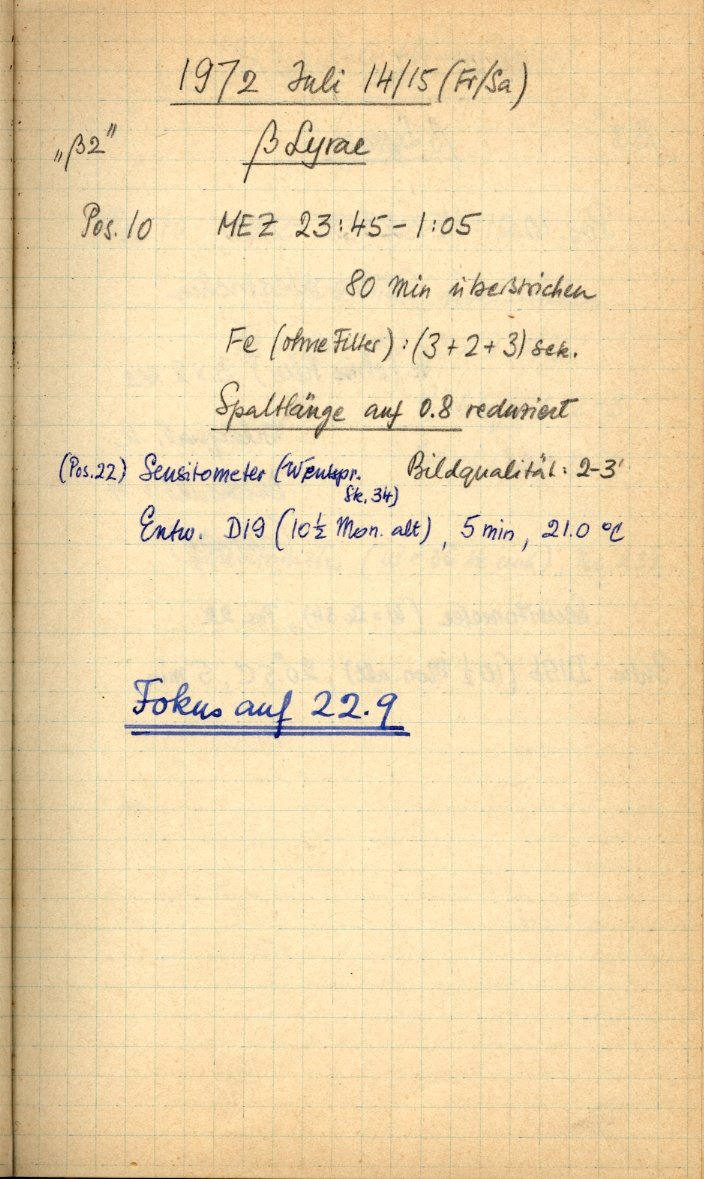 1972 Juli 14/15 (Fr/Sa)
„β2" β Lyrae
Pos. 10 MEZ 23:45 - 1:05
80 min überstrichen
Fe (ohne Filter): (3+2+3) sek.
Spaltlänge auf 0.8 reduziert
(Pos. 22) Sensitometer (W entspr. Sk. 34) Bildqualität: 2-3
Entw. D19 (10½ Mon. alt), 5 min, 21.0 °C
Fokus auf 22.9